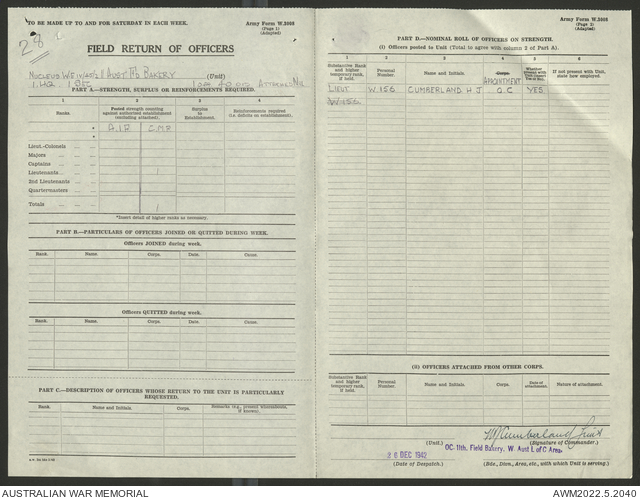 TO BE MADE UP TO AND FOR SATURDAY IN EACH WEEK.
Army Form W.3008
(Page 1)
(Adapted)
28
FIELD RETURN OF OFFICERS
AUST FD BAKERY (Unit)
PART A.—STRENGTH, SURPLUS OR REINFORCEMENTS REQUIRED.
1 2 3 4
Ranks.
Posted strength counting against authorised establishment (excluding attached).
Surplus to Establishment.
Reinforcements required (i.e. deficits on establishment).
A.I.F. C.M.F.
Lieut.-Colonels
Majors
Captains
Lieutenants 1
2nd Lieutenants
Quartermasters
Totals 1
*Insert detail of higher ranks as necessary.
PART B.—PARTICULARS OF OFFICERS JOINED OR QUITTED DURING WEEK.
Officers JOINED during week.
Rank. Name. Corps. Date. Cause.
Officers QUITTED during week.
Rank. Name. Corps. Date. Cause.
PART C.—DESCRIPTION OF OFFICERS WHOSE RETURN TO THE UNIT IS PARTICULARLY REQUESTED.
Rank. Name and Initials. Corps. Remarks (e.g., present whereabouts, if known).
Army Form W.3008
(Page 2)
(Adapted)
PART D.—NOMINAL ROLL OF OFFICERS ON STRENGTH.
(i) Officers posted to Unit (Total to agree with column 2 of Part A).
1 2 3 4 5 6
Substantive Rank and higher temporary rank, if held.
Personal Number.
Name and Initials.
Corps.
APPOINTMENT
Whether present with Unit (insert Yes or No).
If not present with Unit, state how employed.
LIEUT W.156 CUMBERLAND H.J O.C YES
(ii) OFFICERS ATTACHED FROM OTHER CORPS.
Substantive Rank and higher temporary rank, if held.
Personal Number.
Name and Initials.
Corps.
Date of attachment.
Nature of attachment.
HJCumberland Lieut
(Unit.) (Signature of Commander.)
OC. 11th. Field Bakery, W. Aust L of C Area.
26 DEC 1942
(Date of Despatch.) (Bde., Divn., Area, etc., with which Unit is serving.)
AUSTRALIAN WAR MEMORIAL
AWM2022.5.2040